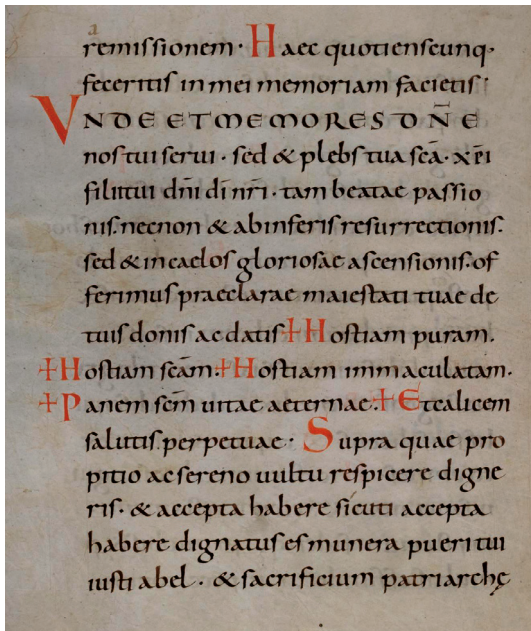 remissionem · Haec quotienscunq·
feceritis in mei memoriam facietis ·
UNDE ET MEMORES DÑE
nos tui serui · sed & plebs tua sc̄a · xp̄i
filii tui dn̄i di n̄ri · tam beatae passio
nis. necnon & ab inferis resurrectionis.
sed & in caelos gloriosae ascensionis. of
ferimus praeclarae maiestati tuae de
tuis donis ac datis + Hostiam puram.
+ Hostiam sc̄am. + Hostiam immaculatam.
+ Panem sc̄m uitae aeternae. + Et calicem
salutis perpetuae · Supra quae pro
pitio ac sereno uultu respicere digne
ris · & accepta habere sicuti accepta
habere dignatus es munera pueri tui
iusti abel · & sacrificium patriarchę